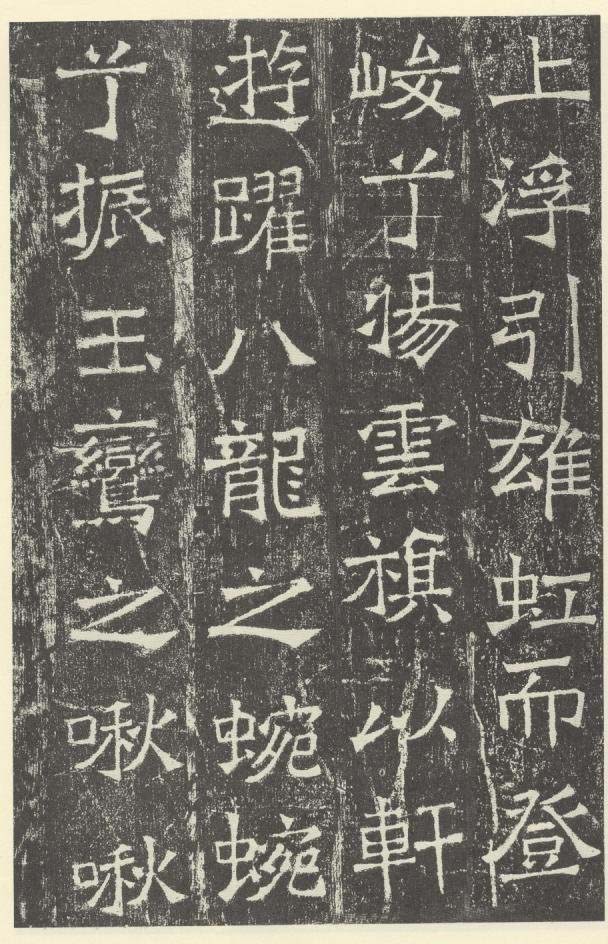 上浮引雄虹而登
峻兮揚雲旗以軒
遊躍八龍之蜿蜿
兮振玉鸞之啾啾